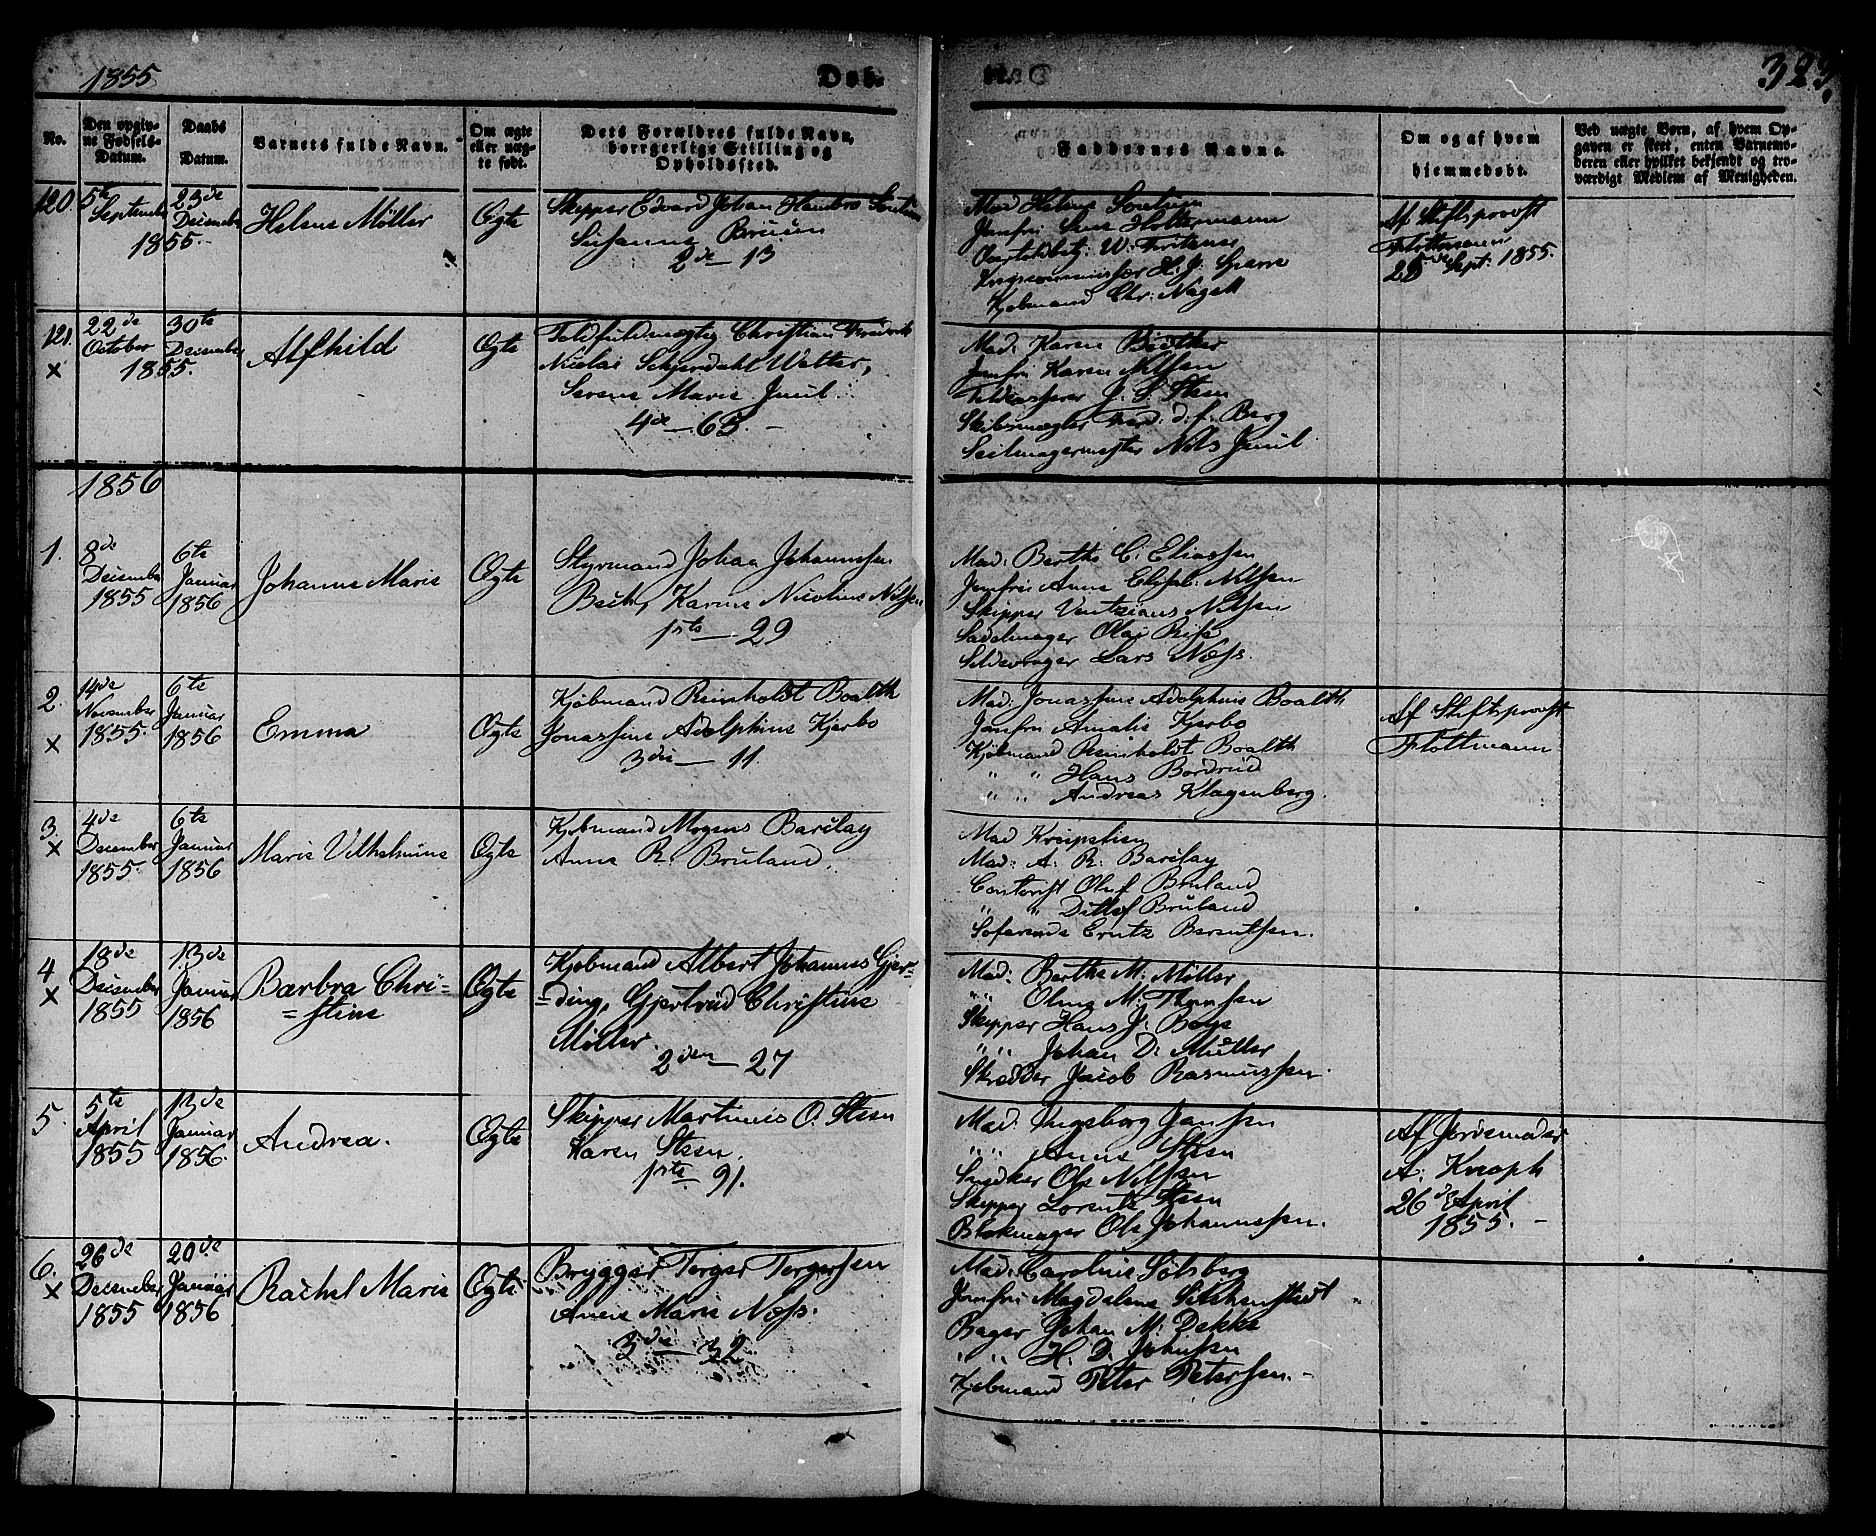 1855
Døb.
323.
No.
Den opgiv-
ne Fødsels-
Datum.
Daabs
Datum.
Barnets fulde Navn.
Om ægte
eller uæg-
te født.
Dets Forældres fulde Navn,
borgerlige Stilling og
Opholdssted.
Faddernes Navne.
Om og af hvem
hjemmedøbt.
Ved uægte Børn, af hvem Op-
gaven er skeet, enten Barnemo-
deren eller hvilket bekjendt og tro-
værdigt Medlem af Menigheden.
120
5te
September
1855.
23de
Decembr
Helene Møller
Ægte
Skipper Edvard Johan Hambro
Susanne Bruun
2de – 13
Mad Helene
Jomfru Sine Holtermann
W.
H. J. Sparre
Kjøbmand Chr. Nagell
Af Stiftsprovst
Flottmann
25de Sept: 1855.
121.
x
22de
October
1855.
30te
December
Alfhild
Ægte
Toldfuldmægtig Christian Fredrik
Nicolai Schjerdahl Welter,
Serene Marie Juul.
4de – 65. –
Mad: Karen
Jomfru Karen Nilsen
J. S. Steen
Skibsmægler Fred. d. f. Berg
Seilmagermester Nils Juul.
1856
1.
8de
December
1855
6te
Januar
1856
Johanne Marie
Ægte
Styrmand Johan Johannessen
Bech, Karine Nicoline Nilsen
1ste – 29
Mad: Berthe C. Eliassen
Jomfru Anne Elisab: Nilsen
Skipper Ventzians Nilsen
Sadelmager Olai
Sildevrager Lars Næss.
2.
x
14de
November
1855.
6te
Januar
1856
Emma
Ægte
Kjøbmand Reinholdt Boalth
Jonassine Adolphine Kjerbo
3die – 11.
Mad: Jonassine Adolphine Boalth
Jomfru Amalie Kjerbo
Kjøbmand Reinholdt Boalth
" " Hans Bordrud
" " Andreas Klagenberg.
Af Stiftsprovst
Flottmann
3.
x
4de
December
1855.
6te
Januar
1856
Marie Vilhelmine
Ægte
Kjøbmand Mogens Barclay
Anne R. Bruland.
Mad
Mad: A. R. Barclay
Contorist Oluf Bruland
" " Ditlef Bruland
Søfarende Erntz Berentsen.
4
x
18de
December
1855
13de
Januar
1856
Barbra Chri=
=stine
Ægte
Kjøbmand Albert Johannes Gjer=
=ding, Gjertrud Christine
Møller.
2den – 27
Mad: Berthe M. Møller
" Olina M. Thomsen
Skipper Hans J. Boye
" " Johan D. Müller
Skrædder Jacob Rasmussen.
5.
5te
April
1855
13de
Januar
1856.
Andrea.
Ægte
Skipper Martinus O. Steen
Karen Steen.
1ste 91.
Mad: Ingeborg Jansen
" " Anne Steen
Snedker Ole Nilsen
Skipper Lorentz Steen
Blokmager Ole Johannessen.
Af Jordemoder
A. Knoph
26de April
1855. –
6.
x
26de
December
1855
20de
Januar
1856
Rachel Marie
Ægte
Brygger Torger Torgersen
Anne Marie Næss.
3die – 32
Mad: Caroline Solberg
Jomfru Magdalene Silchenstedt
Bager Johan M. Dekke
" " H. D. Johnsen
Kjøbmand Peter Petersen. –